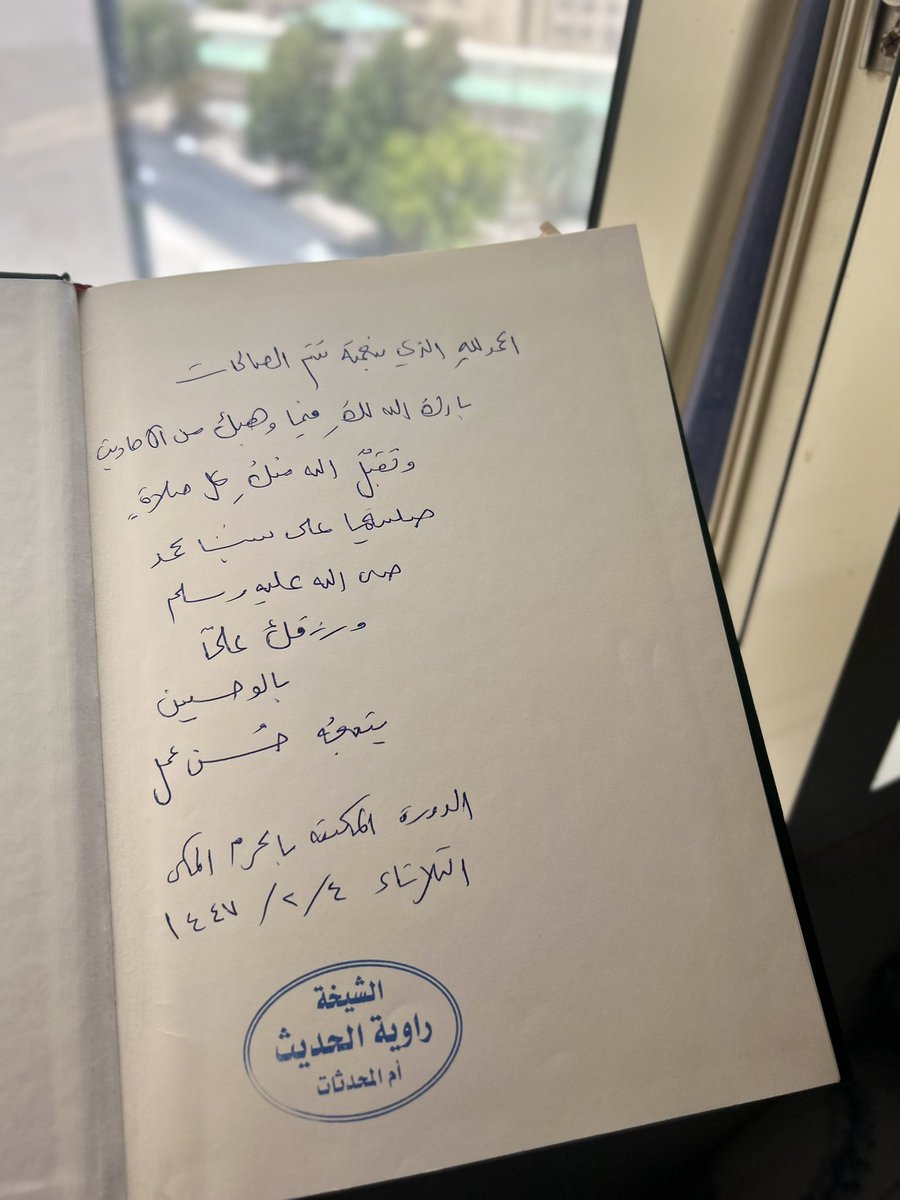 الحمد لله الذي بنعمته تتم الصالحات
بارك الله لكِ فيما وهبك من الأحاديث
وتقبّل الله منكِ كل صلاةٍ
صليتها على سيدنا محمد
صلى الله عليه وسلم
ورزقك علمًا
بالوحيين
يتبعهُ حُسن عمل
الدورة المكثفة بالحرم المكي
الثلاثاء ١٤٤٧/٢/٤
الشيخة
راوية الحديث
أم المحدثات